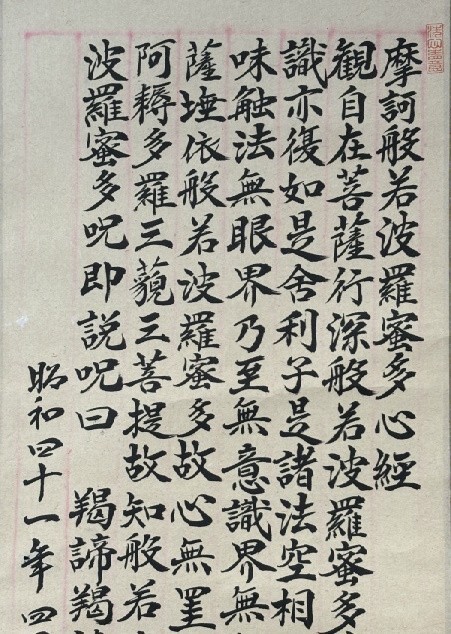 摩訶般若波羅蜜多心経
観自在菩薩行深般若波羅蜜多
識亦復如是舎利子是諸法空相
味触法無眼界乃至無意識界無
薩埵依般若波羅蜜多故心無罣
阿耨多羅三藐三菩提故知般若
波羅蜜多呪即説呪曰 羯諦羯
昭和四十一年四